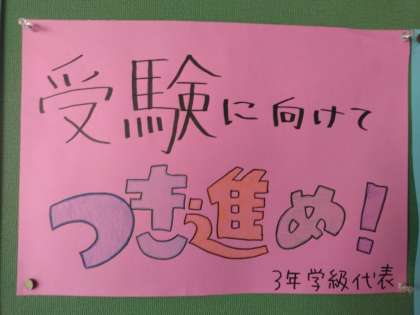 受験に向けて
つき進め!
3年学級代表